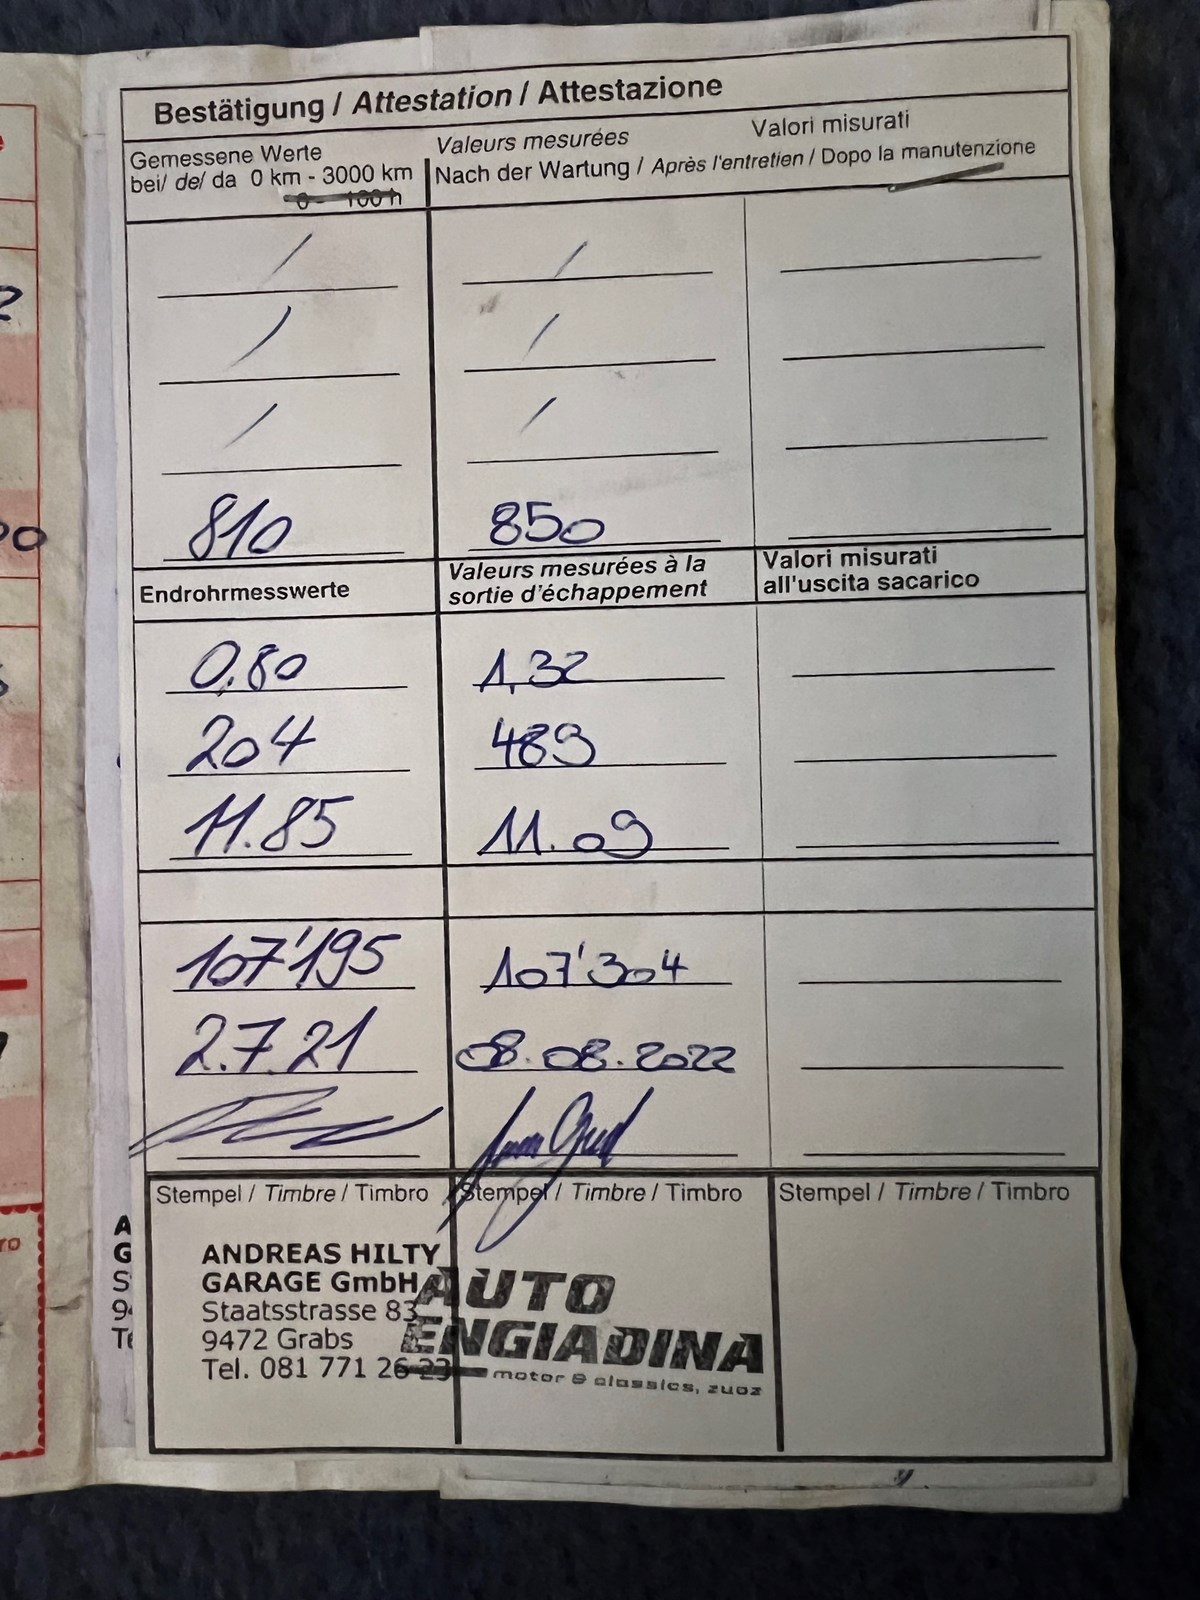 Bestätigung / Attestation / Attestazione
Gemessene Werte
bei/ de/ da 0 km - 3000 km
0 - 100 h
Valeurs mesurées Valori misurati
Nach der Wartung / Après l'entretien / Dopo la manutenzione
/ /
/ /
/ /
810 850
Endrohrmesswerte
Valeurs mesurées à la
sortie d'échappement
Valori misurati
all'uscita sacarico
0.80 1,32
204 489
11.85 11.09
107'195 107'304
2.7.21 08.08.2022
Stempel / Timbre / Timbro Stempel / Timbre / Timbro Stempel / Timbre / Timbro
ANDREAS HILTY
GARAGE GmbH
Staatsstrasse 83
9472 Grabs
Tel. 081 771 26 23
AUTO
ENGIADINA
motor & classics, zuoz